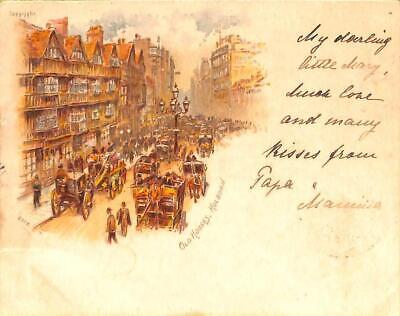 Copyright
My darling
little Mary,
Much love
and many
Kisses from
Papa
Mamma
Old Houses, Holborn